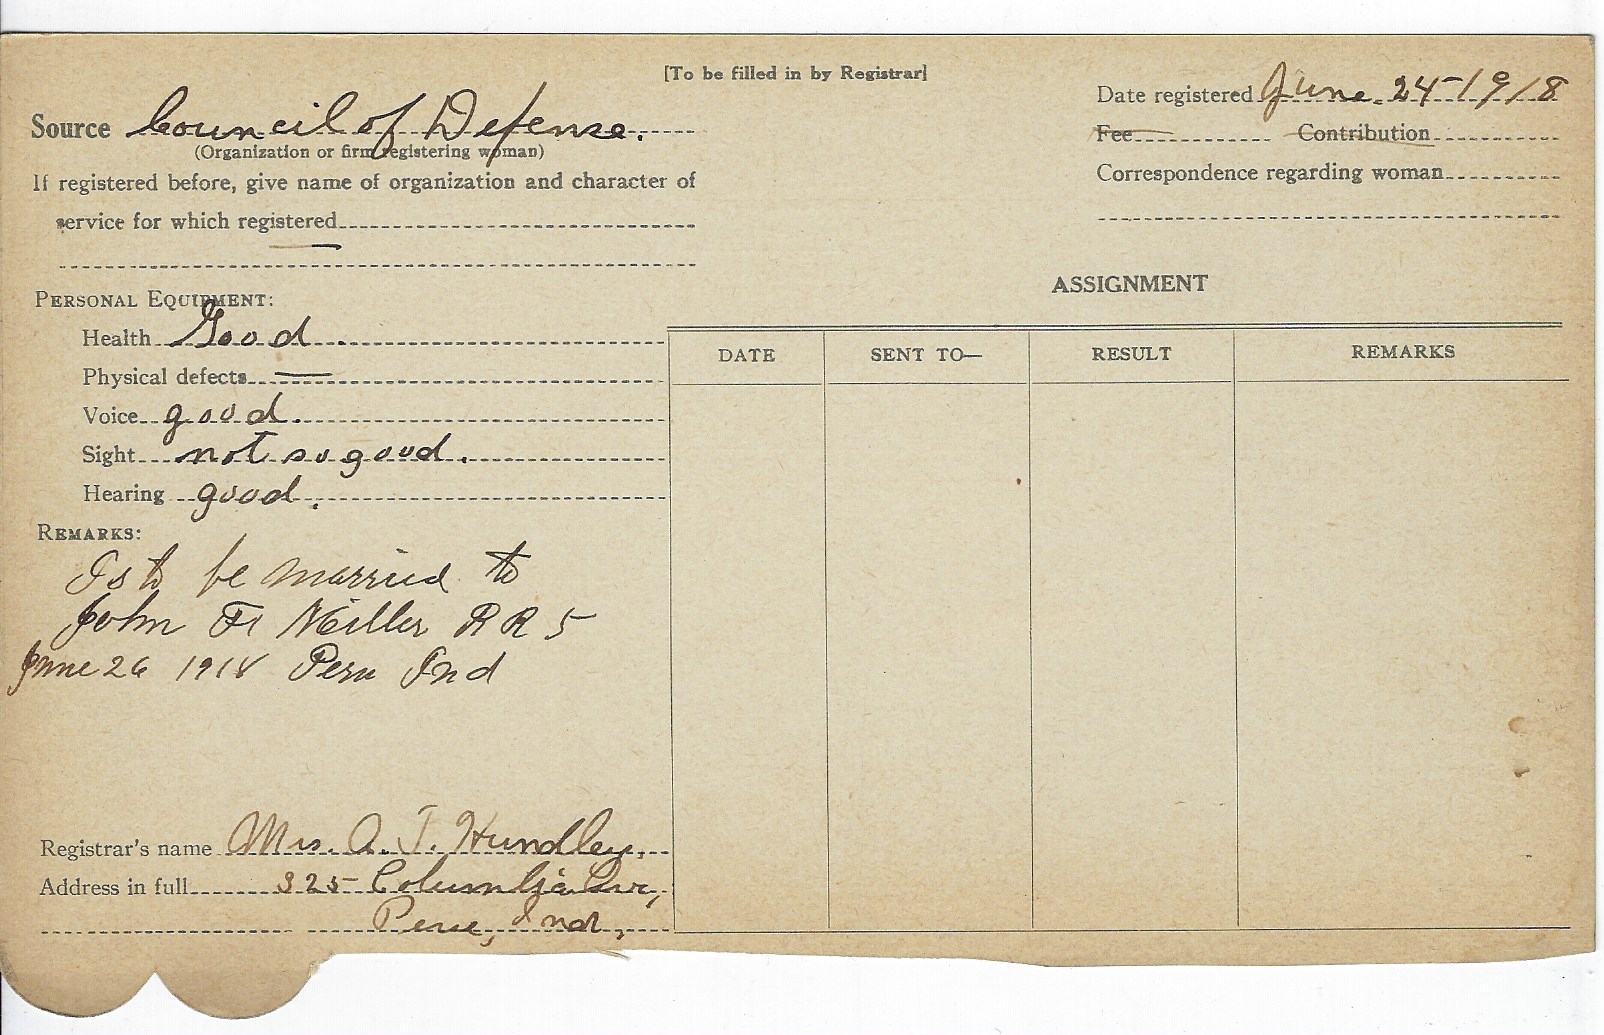 [To be filled in by Registrar]
Date registered June 24-1918
Source Council of Defense.
(Organization or firm registering woman)
Fee Contribution
If registered before, give name of organization and character of
Correspondence regarding woman
service for which registered
ASSIGNMENT
PERSONAL EQUIPMENT:
Health Good.
DATE SENT TO— RESULT REMARKS
Physical defects —
Voice good.
Sight not so good.
Hearing good.
REMARKS:
Is to be married to
John F. Miller R R 5
June 26 1918 Peru Ind
Registrar's name Mrs. A. J. Hundley,
Address in full 325 Columbia Ave,
Peru, Ind,